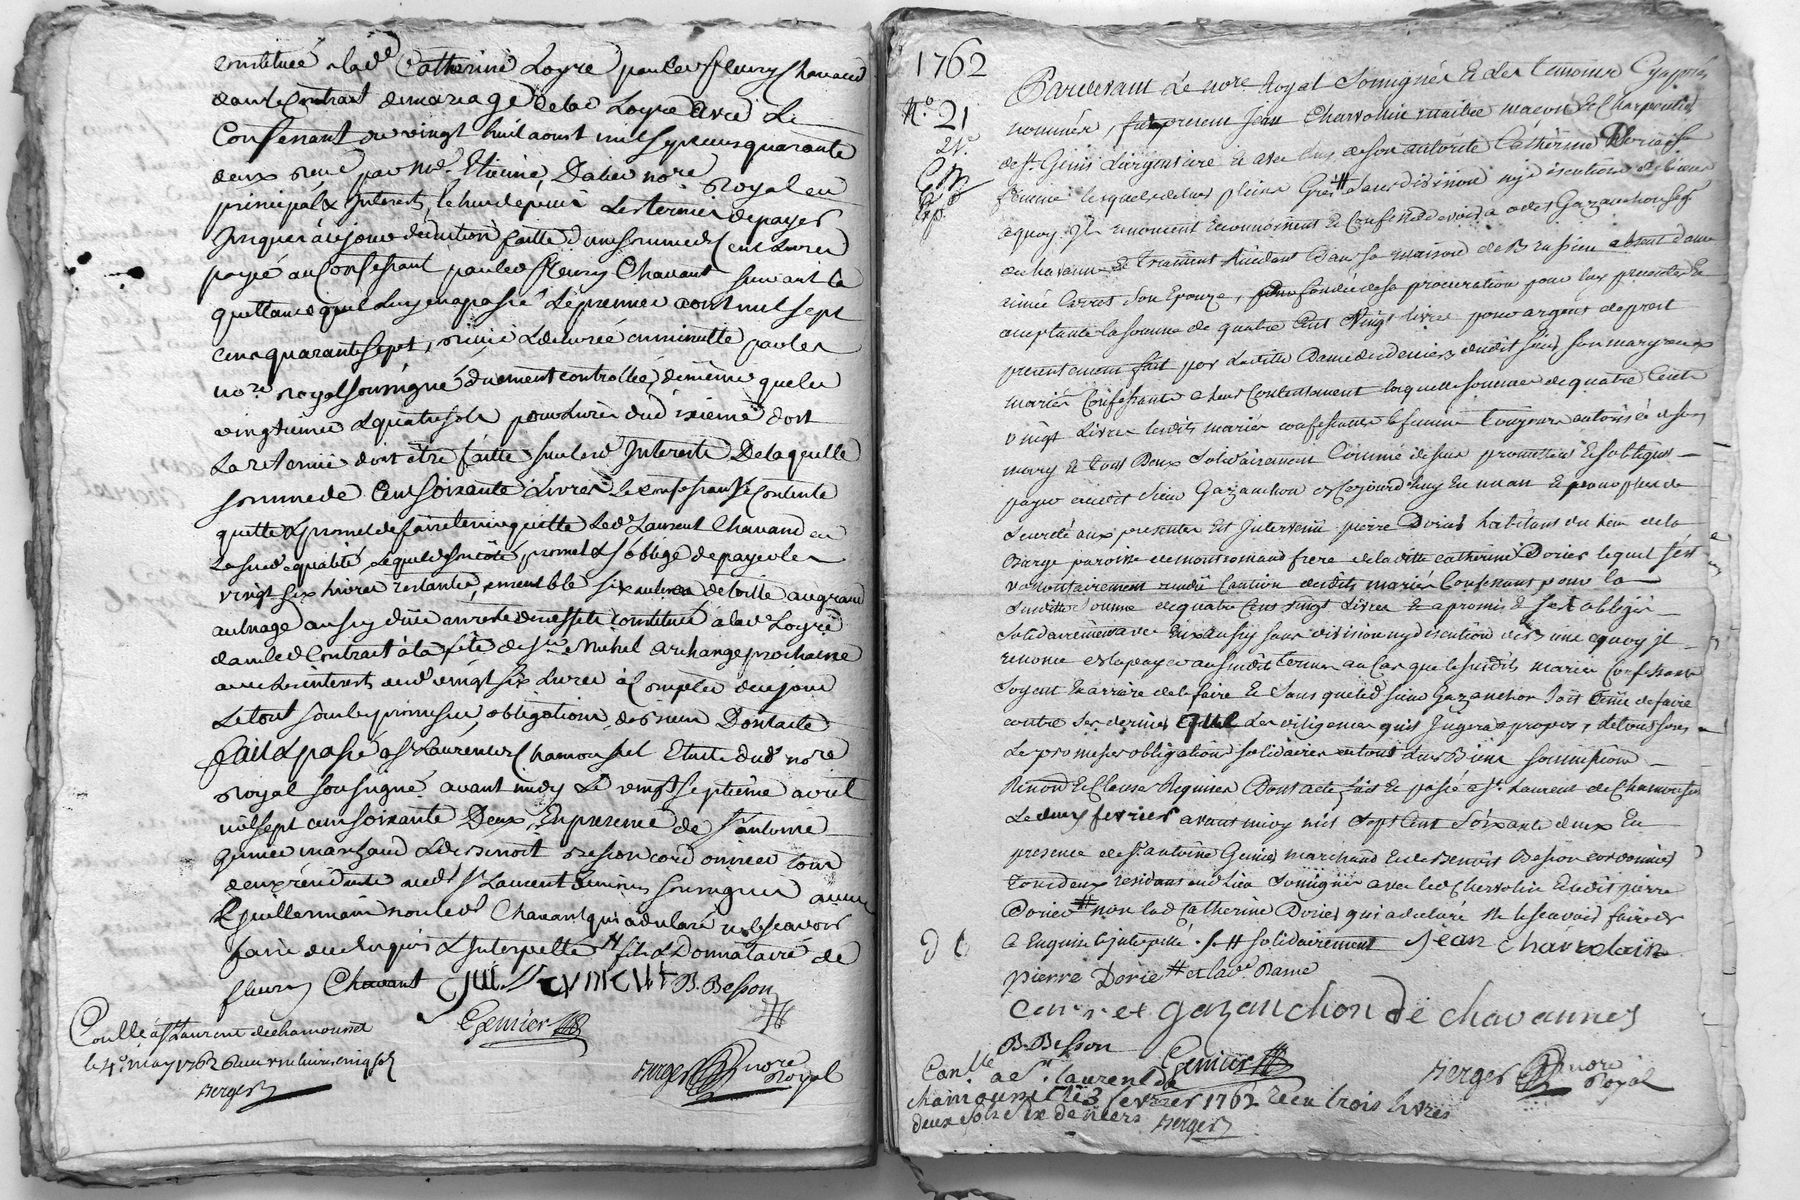 constitueé a lad.e Catherine Loyre par led fleury Chavand
dans le Contrat de mariage de lad Loyre avec Le
Confessant du vingt huit aoust mil sept cens quarante
deux reçu par me. Etienne Dalier nore Royal en
principal & Interests, le huit depuis Les termes de payer
Jusques à ce jour deduction faitte d'une somme de Cent Livres
payée au Confessant par led fleury Chavant suivant la
quittance qu'il Luy en a passé Le premier aoust mil sept
cens quarante sept, reçüe & Livrée en minutte par les
nore royal soussigné duement controllée, de même que les
vingtiemes & quatre sols pour Livre du dixieme dont
La retenüe doit être faitte sur lesd Interests De laquelle
somme de Cent soixante Livres Le confessant se contente
quitte & promet de faire tenir quitte Led Laurent Chavand en
La susd qualité, Lequel de son côté promet & s'oblige de payer les
vingt six Livres restantes, ensemble six aulnes de toille au grand
aulnage aussy düe en reste des effets constitués à lad Loyre
dans led Contrat à la fête de St. Michel archange prochaine
avec Les interests desd vingt six Livres à Compter de ce jour
Le tout sous les promesses, obligations, des biens Dont acte
fait & passé à St Laurent de Chamousset Etude dud nore
Royal soussigné avant midy Le vingt septième avril
mil sept cens soixante Deux, En presence de Sr antoine
Genier marchand & de Benoit Besson cordonnier tous
deux résidents aud St Laurent temoins soussignés avec
Guillermain non led Chavant qui a declaré ne le scavoir
faire de ce enquis & Interpellé # fils & Donnataire de
fleury Chavant B. Besson
Genier
Berger nore Royal
Conllé à St Laurent de chamousset
le 4e. may 1762 Reçu
Berger
1762
N.o 21
Pardevant Le nore Royal Soussigné & Les temoins Cy après
nommés, fut present Jean Charvolin maitre macon & Charpentier
de St. Genis L'argentiere & avec luy de son autorité Catherine Dorier sa
femme lesquels de leur plein Gré # sans division ny discution de biens
a quoy Ils renoncent reconnoissent & Confessent devoir a
de chavanne & Traitant Residant Dans sa maison de Brussieu absent dame
aimée Cerret Son Epouze, fondée de sa procuration pour luy presente &
acceptante la somme de quatre Cent Vingt livres pour argent de prest
presentement fait par Laditte Dame des deniers dudit sieur son mary auxd
mariés Confessants a leur Contentement laquelle somme de quatre Cents
vingt Livres lesdits mariés confessants la femme toujours autorisée de son
mary & tous Deux solidairement Comme dessus promettent & s'obligent
payer audit Sieur Gazanchon d'aujourd'huy En un an & pour plus de
Seureté aux presentes Est Intervenu pierre Dorier habitant du lieu de la
Barge paroisse de montromand frere de laditte catherine Dorier lequel s'est
volontairement rendu Caution desdits mariés Confessants pour la
susditte somme de quatre Cent vingt Livres & a promis & s'est obligé
solidairement avec Eux aussy sans division ny discution de biens a quoy Il
renonce de la payer au susdit terme au Cas que les susdits mariés Confessants
soyent En arriere de le faire & sans que led sieur Gazanchon soit tenu de faire
contre ces derniers Les diligences qu'il Jugera a propos, de tous sous
Les promesses obligations solidaires de tous leurs Biens soumissions
Renon & Clauses Requises Dont acte fait & passé a St. Laurent de Chamousset
Le deux fevrier avant midy mil sept Cent soixante deux En
presence de Sr. antoine Genier marchand & de Benoit Besson cordonnier
tous deux residants aud Lieu soussignés avec led Charvolin & ledit pierre
Dorier # non lad Catherine Dorier qui a declaré ne le scavoir faire de
Ce Enquise & interpellée. # solidairement Jean charvolain
pierre Dorie # et lad.e Dame
Cerret gazanchon de chavannes
B. Besson
Genier
Berger nore Royal
Con.lle a St. laurent de
chamousset le 3 fevrier 1762 Reçu trois livres
deux sols six deniers Berger